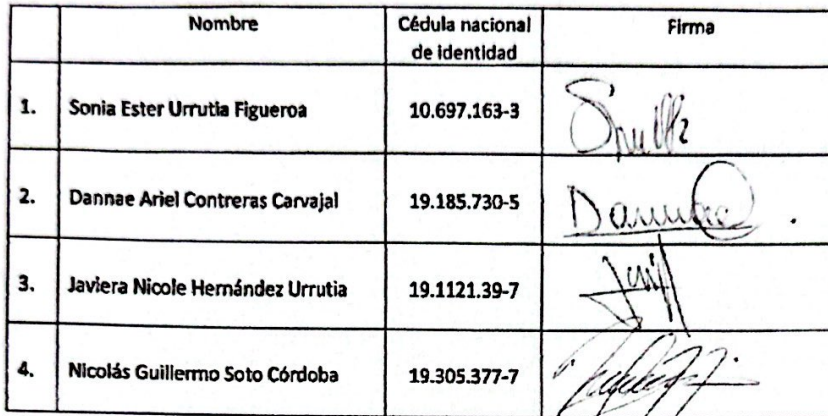 Nombre Cédula nacional de identidad Firma
1. Sonia Ester Urrutia Figueroa 10.697.163-3
2. Dannae Ariel Contreras Carvajal 19.185.730-5 Dannae
3. Javiera Nicole Hernández Urrutia 19.1121.39-7
4. Nicolás Guillermo Soto Córdoba 19.305.377-7